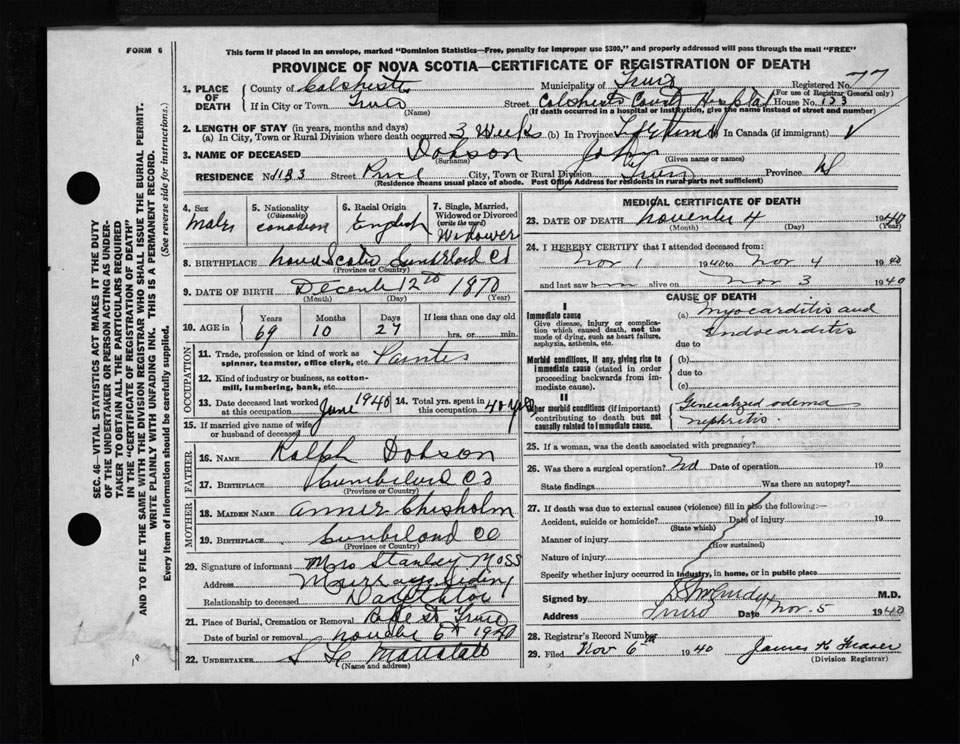 FORM 6
This form if placed in an envelope, marked "Dominion Statistics—Free, penalty for improper use $300," and properly addressed will pass through the mail "FREE"
PROVINCE OF NOVA SCOTIA—CERTIFICATE OF REGISTRATION OF DEATH
SEC. 46—VITAL STATISTICS ACT MAKES IT THE DUTY
OF THE UNDERTAKER OR PERSON ACTING AS UNDER-
TAKER TO OBTAIN ALL THE PARTICULARS REQUIRED
IN THE "CERTIFICATE OF REGISTRATION OF DEATH"
AND TO FILE THE SAME WITH THE DIVISION REGISTRAR WHO SHALL ISSUE THE BURIAL PERMIT.
WRITE PLAINLY WITH UNFADING INK. THIS IS A PERMANENT RECORD.
Every item of information should be carefully supplied. (See reverse side for instructions.)
1. PLACE OF DEATH
County of Colchester Municipality of Truro Registered No. 77
(For use of Registrar General only)
If in City or Town Truro Street Colchester County Hospital House No. 133
(Name) (If death occurred in a hospital or institution, give the name instead of street and number)
2. LENGTH OF STAY (in years, months and days)
(a) In City, Town or Rural Division where death occurred 3 Weeks (b) In Province Lifetime (c) In Canada (if immigrant)
3. NAME OF DECEASED Dobson John
(Surname) (Given name or names)
RESIDENCE No. 133 Street City, Town or Rural Division Truro Province NS
(Residence means usual place of abode. Post Office Address for residents in rural parts not sufficient)
4. Sex Male
5. Nationality (Citizenship) Canadian
6. Racial Origin English
7. Single, Married, Widowed or Divorced (write the word) Widower
8. BIRTHPLACE Nova Scotia Cumberland Co
(Province or Country)
9. DATE OF BIRTH December 12th 1870
(Month) (Day) (Year)
10. AGE in Years Months Days If less than one day old
69 10 27 hrs. or min.
OCCUPATION
11. Trade, profession or kind of work as spinner, teamster, office clerk, etc. Painter
12. Kind of industry or business, as cotton-mill, lumbering, bank, etc.
13. Date deceased last worked at this occupation June 1940
14. Total yrs. spent in this occupation 40 yrs
15. If married give name of wife or husband of deceased
FATHER
16. NAME Ralph Dobson
17. BIRTHPLACE Cumberland Co
(Province or Country)
MOTHER
18. MAIDEN NAME Annie Chisholm
19. BIRTHPLACE Cumberland Co
(Province or Country)
20. Signature of informant Mrs Stanley Moss
Address Murray Siding
Relationship to deceased Daughter
21. Place of Burial, Cremation or Removal Truro
Date of burial or removal November 6th 1940
22. UNDERTAKER
(Name and address)
MEDICAL CERTIFICATE OF DEATH
23. DATE OF DEATH November 4 1940
(Month) (Day) (Year)
24. I HEREBY CERTIFY that I attended deceased from:
Nov 1 1940 to Nov 4 1940
and last saw him alive on Nov 3 1940
CAUSE OF DEATH
I
Immediate cause
Give disease, injury or complication which caused death, not the mode of dying, such as heart failure, asphyxia, asthenia, etc.
(a) Myocarditis and
Endocarditis
due to
Morbid conditions, if any, giving rise to immediate cause (stated in order proceeding backwards from immediate cause).
(b)
due to
(c)
II
Other morbid conditions (if important) contributing to death but not causally related to immediate cause.
Generalized edema
nephritis
25. If a woman, was the death associated with pregnancy?
26. Was there a surgical operation? No Date of operation 19
State findings Was there an autopsy?
27. If death was due to external causes (violence) fill in also the following:—
Accident, suicide or homicide? Date of injury 19
(State which)
Manner of injury
(How sustained)
Nature of injury
Specify whether injury occurred in industry, in home, or in public place
Signed by M.D.
Address Truro Date Nov. 5 1940
28. Registrar's Record Number
29. Filed Nov 6th 1940 James K Fraser
(Division Registrar)